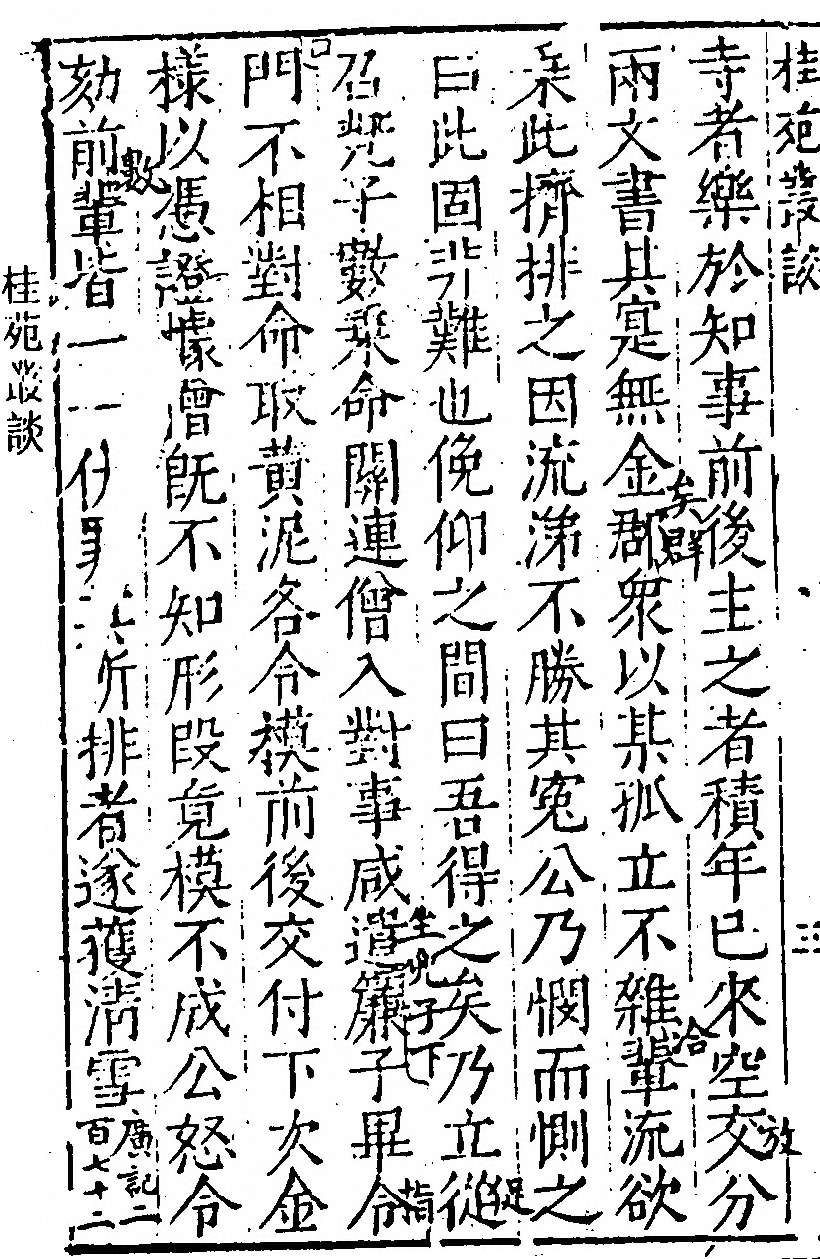 桂苑叢談
寺者樂於知事前後主之者積年已來空交分
兩文書其寔無金郡衆以某孤立不雜輩流欲
乘此擠排之因流涕不勝其寃公乃憫而惻之
曰此固非難也俛仰之間曰吾得之矣乃立從
召兜子數乘命關連僧入對事咸遣簾子畢令
門不相對命取黄泥各令模前後交付下次金
樣以憑證據僧旣不知形段竟模不成公怒令
劾前輩皆一一伏罪其所排者遂獲清雪
廣記二
百七十二
放
矣群
洽
促
坐兜子下
指
口
數
三
桂苑叢談